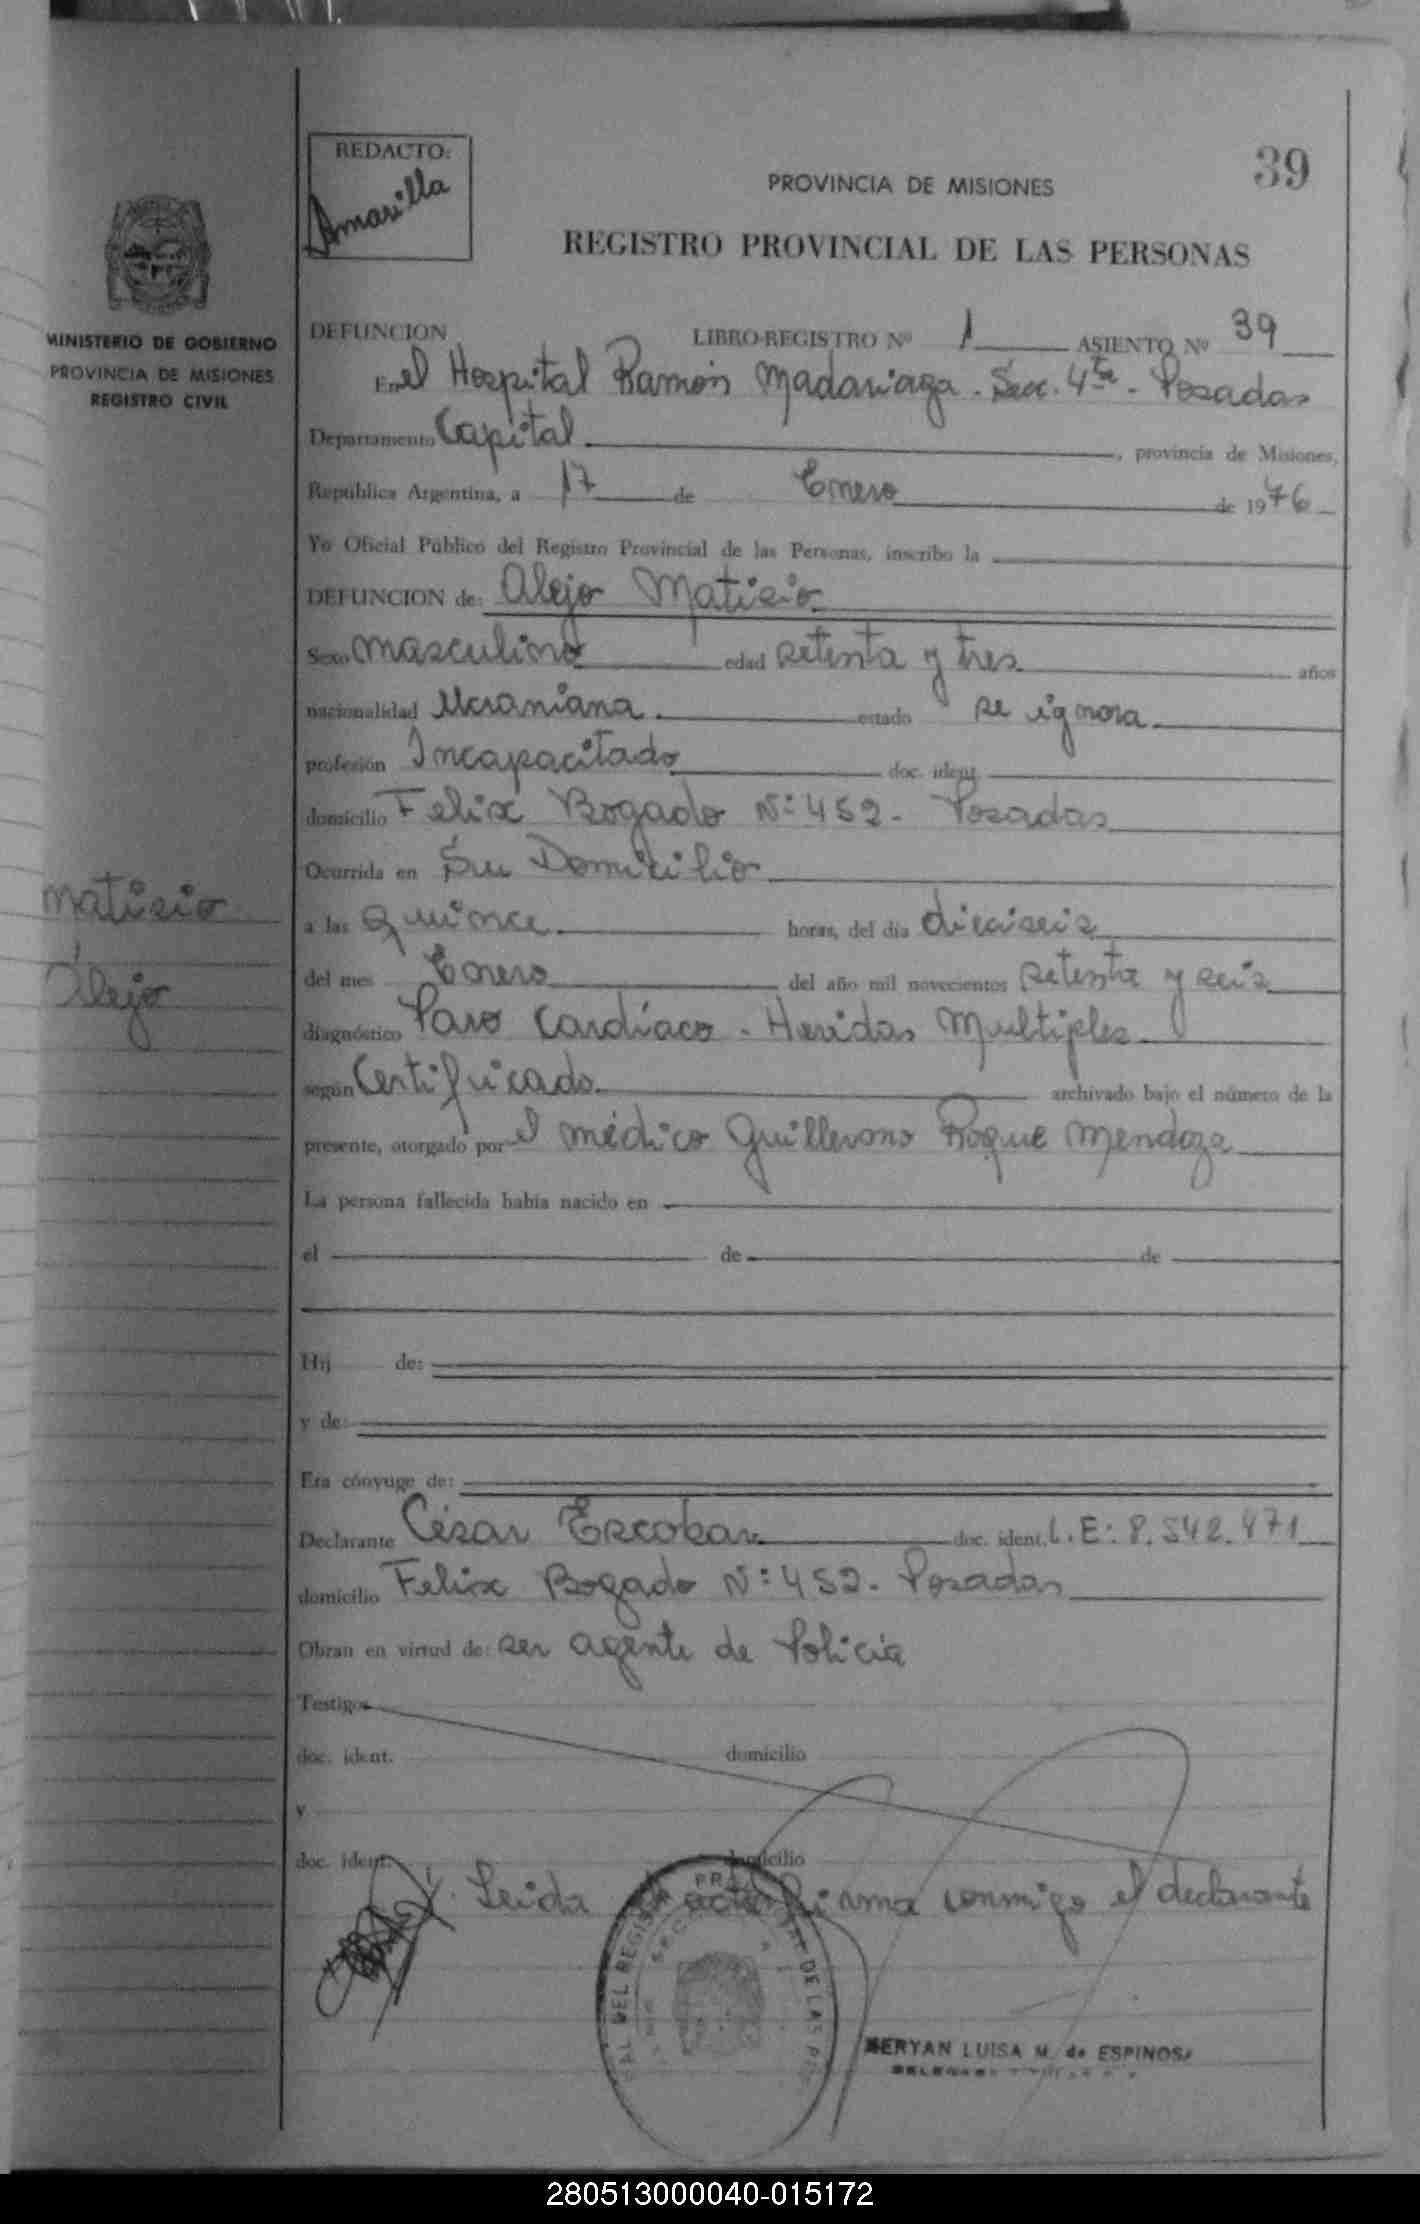 REDACTO:
Amarilla
39
PROVINCIA DE MISIONES
REGISTRO PROVINCIAL DE LAS PERSONAS
MINISTERIO DE GOBIERNO
PROVINCIA DE MISIONES
REGISTRO CIVIL
DEFUNCION LIBRO-REGISTRO Nº 1 ASIENTO Nº 39
En el Hospital Ramón Madariaga. Sec. 4ta. Posadas
Departamento Capital, provincia de Misiones,
República Argentina, a 17 de Enero de 1976
Yo Oficial Público del Registro Provincial de las Personas, inscribo la
DEFUNCION de: Alejo Matisio
Sexo masculino edad setenta y tres años
nacionalidad Ucraniana. estado se ignora
profesión Incapacitado doc. ident.
domicilio Felix Bogado Nº: 452. Posadas
Ocurrida en Su Domicilio
Matisio
Alejo
a las quince horas, del día dieciseis
del mes Enero del año mil novecientos setenta y seis
diagnóstico Paro Cardíaco. Heridas Multiples
según Certificado. archivado bajo el número de la
presente, otorgado por el médico Guillermo Roque Mendoza
La persona fallecida había nacido en
el de de
Hij de:
y de:
Era cónyuge de:
Declarante César Escobar doc. ident. L.E: 8.542.471
domicilio Felix Bogado Nº: 452. Posadas
Obran en virtud de: ser agente de Policía
Testigos
doc. ident. domicilio
y
doc. ident. domicilio
Leida el acta firma conmigo el declarante
DEL REGISTRO DE LAS
LUISA M. de ESPINOSA
280513000040-015172